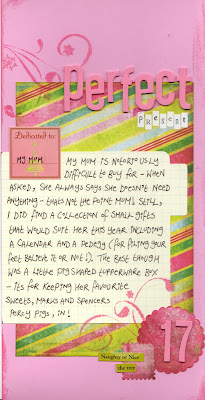 Perfect
present
Dedicated to:
MY MUM
MY MUM IS NOTORIOUSLY
DIFFICULT TO BUY FOR - WHEN
ASKED, SHE ALWAYS SAYS SHE DOESN'T NEED
ANYTHING - THATS NOT THE POINT MUM! STILL,
I DID FIND A COLLECTION OF SMALL GIFTS
THAT WOULD SUIT HER THIS YEAR INCLUDING
A CALENDAR AND A PEDEGG (FOR FILING YOUR
FEET BELIEVE IT OR NOT!). THE BEST THOUGH
WAS A LITTLE PIG SHAPED TUPPERWARE BOX
- ITS FOR KEEPING HER FAVOURITE
SWEETS, MARKS AND SPENCERS
PERCY PIGS, IN!
17
Naughty or Nice
the tree